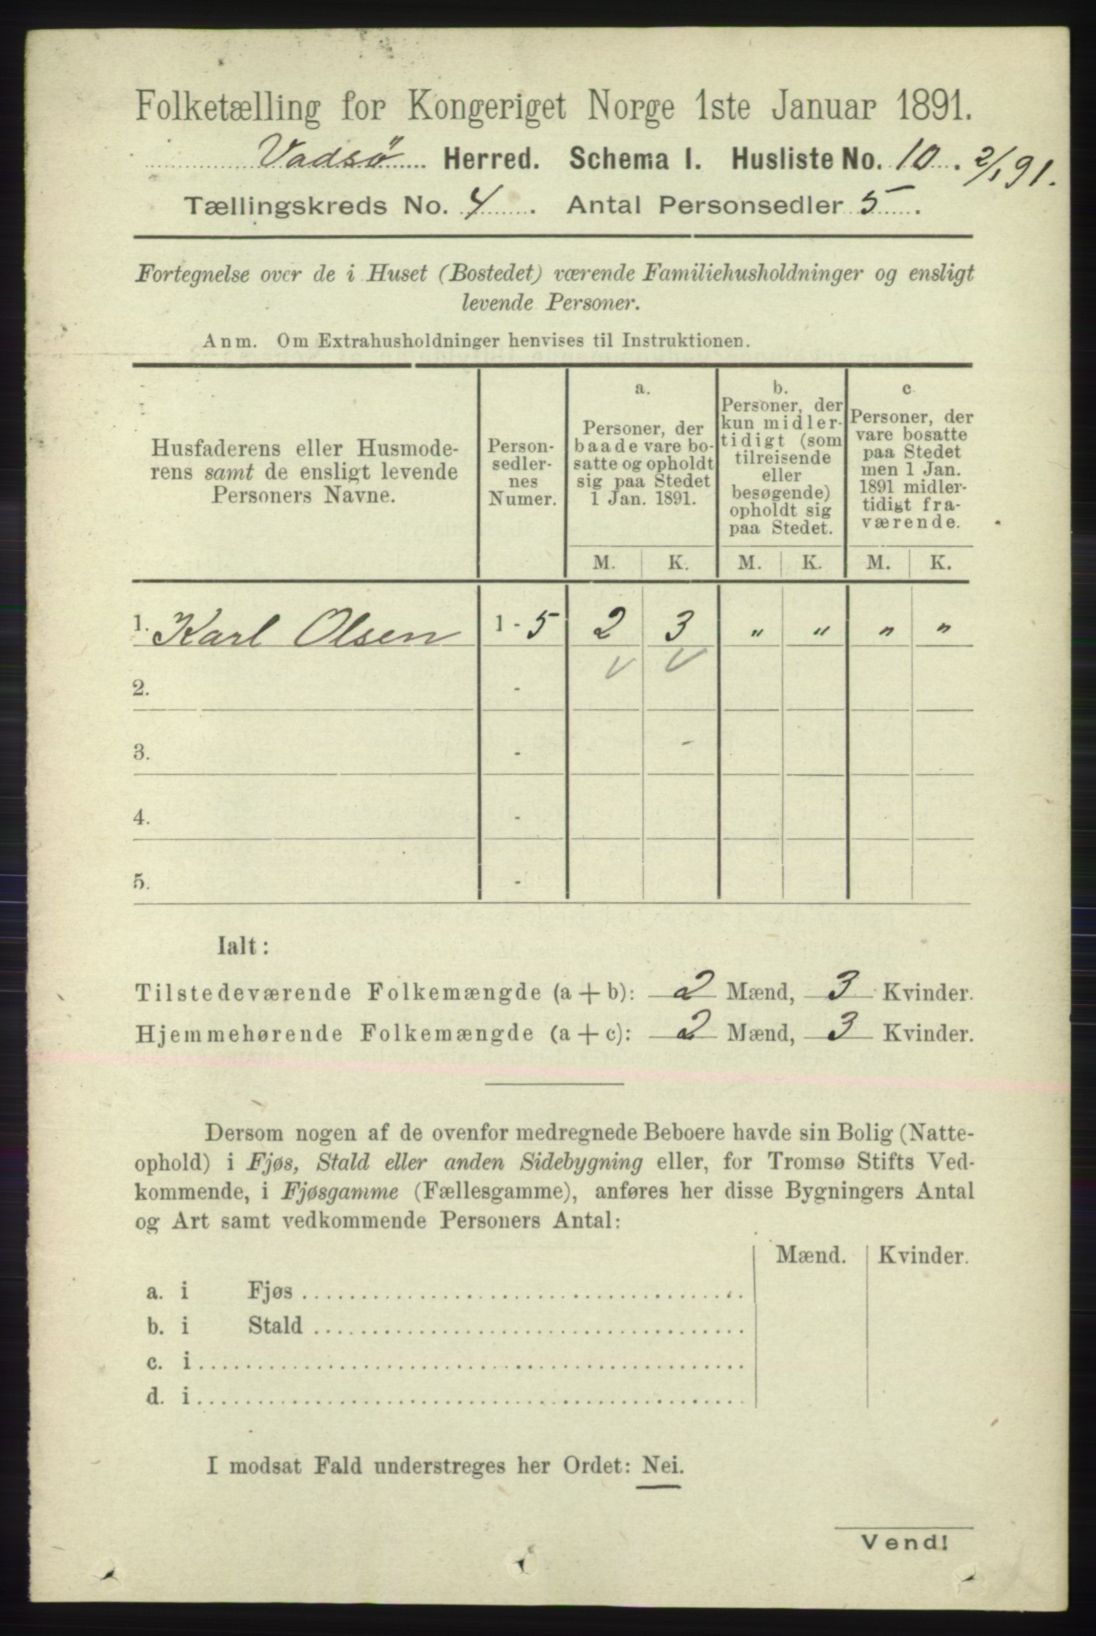 Folketælling for Kongeriget Norge 1ste Januar 1891.
Vadsø Herred. Schema I. Husliste No. 10. 2/1 91.
Tællingskreds No. 4. Antal Personsedler 5.
Fortegnelse over de i Huset (Bostedet) værende Familiehusholdninger og ensligt
levende Personer.
Anm. Om Extrahusholdninger henvises til Instruktionen.
Husfaderens eller Husmode-
rens samt de ensligt levende
Personers Navne.
Person-
sedler-
nes
Numer.
a.
Personer, der
baade vare bo-
satte og opholdt
sig paa Stedet
1 Jan. 1891.
b.
Personer, der
kun midler-
tidigt (som
tilreisende
eller
besøgende)
opholdt sig
paa Stedet.
c
Personer, der
vare bosatte
paa Stedet
men 1 Jan.
1891 midler-
tidigt fra-
værende.
M. K. M. K. M. K.
1. Karl Olsen 1 - 5 2 3 " " " "
2. -
3. -
4. -
5. -
Ialt:
Tilstedeværende Folkemængde (a+b): 2 Mænd, 3 Kvinder.
Hjemmehørende Folkemængde (a+c): 2 Mænd, 3 Kvinder.
Dersom nogen af de ovenfor medregnede Beboere havde sin Bolig (Natte-
ophold) i Fjøs, Stald eller anden Sidebygning eller, for Tromsø Stifts Ved-
kommende, i Fjøsgamme (Fællesgamme), anføres her disse Bygningers Antal
og Art samt vedkommende Personers Antal:
Mænd. Kvinder.
a. i Fjøs
b. i Stald
c. i
d. i
I modsat Fald understreges her Ordet: Nei.
Vend!